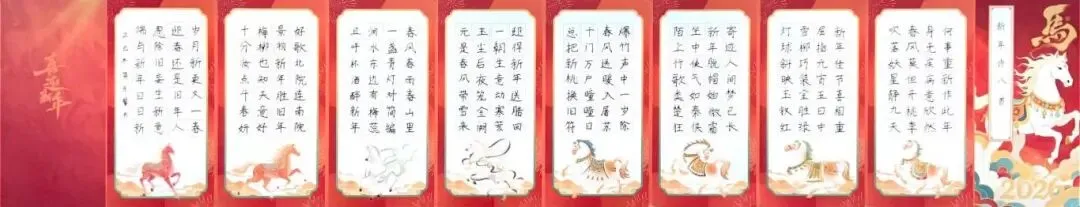 馬
新年诗八首
2026
何事重新作此年
身无疾病意欣然
春风莫但开桃李
吹落妖星静九天
新年佳节喜相重
屈指九百五日中
雪柳巧装宝胜
灯球斜映玉钗红
寄迹人间梦已长
新年脱帽始微霜
坐中使气如秦侠
陌上行歌类楚狂
爆竹声中一岁除
春风送暖入屠苏
千门万户曈曈日
总把新桃换旧符
迎得新年送腊回
一朝生意动寒荄
玉尘后夜笼金阙
元是春风带雪来
春风春雨春山里
一盏青灯对简编
涧水东边有梅蕊
且呼杯酒醉新年
好歌北院连南院
景物新年胜旧年
梅柳也知天意好
十分妆点斗春妍
岁月新更又一春
迎春还是旧年人
愿除旧妄生新意
端与新年日日新